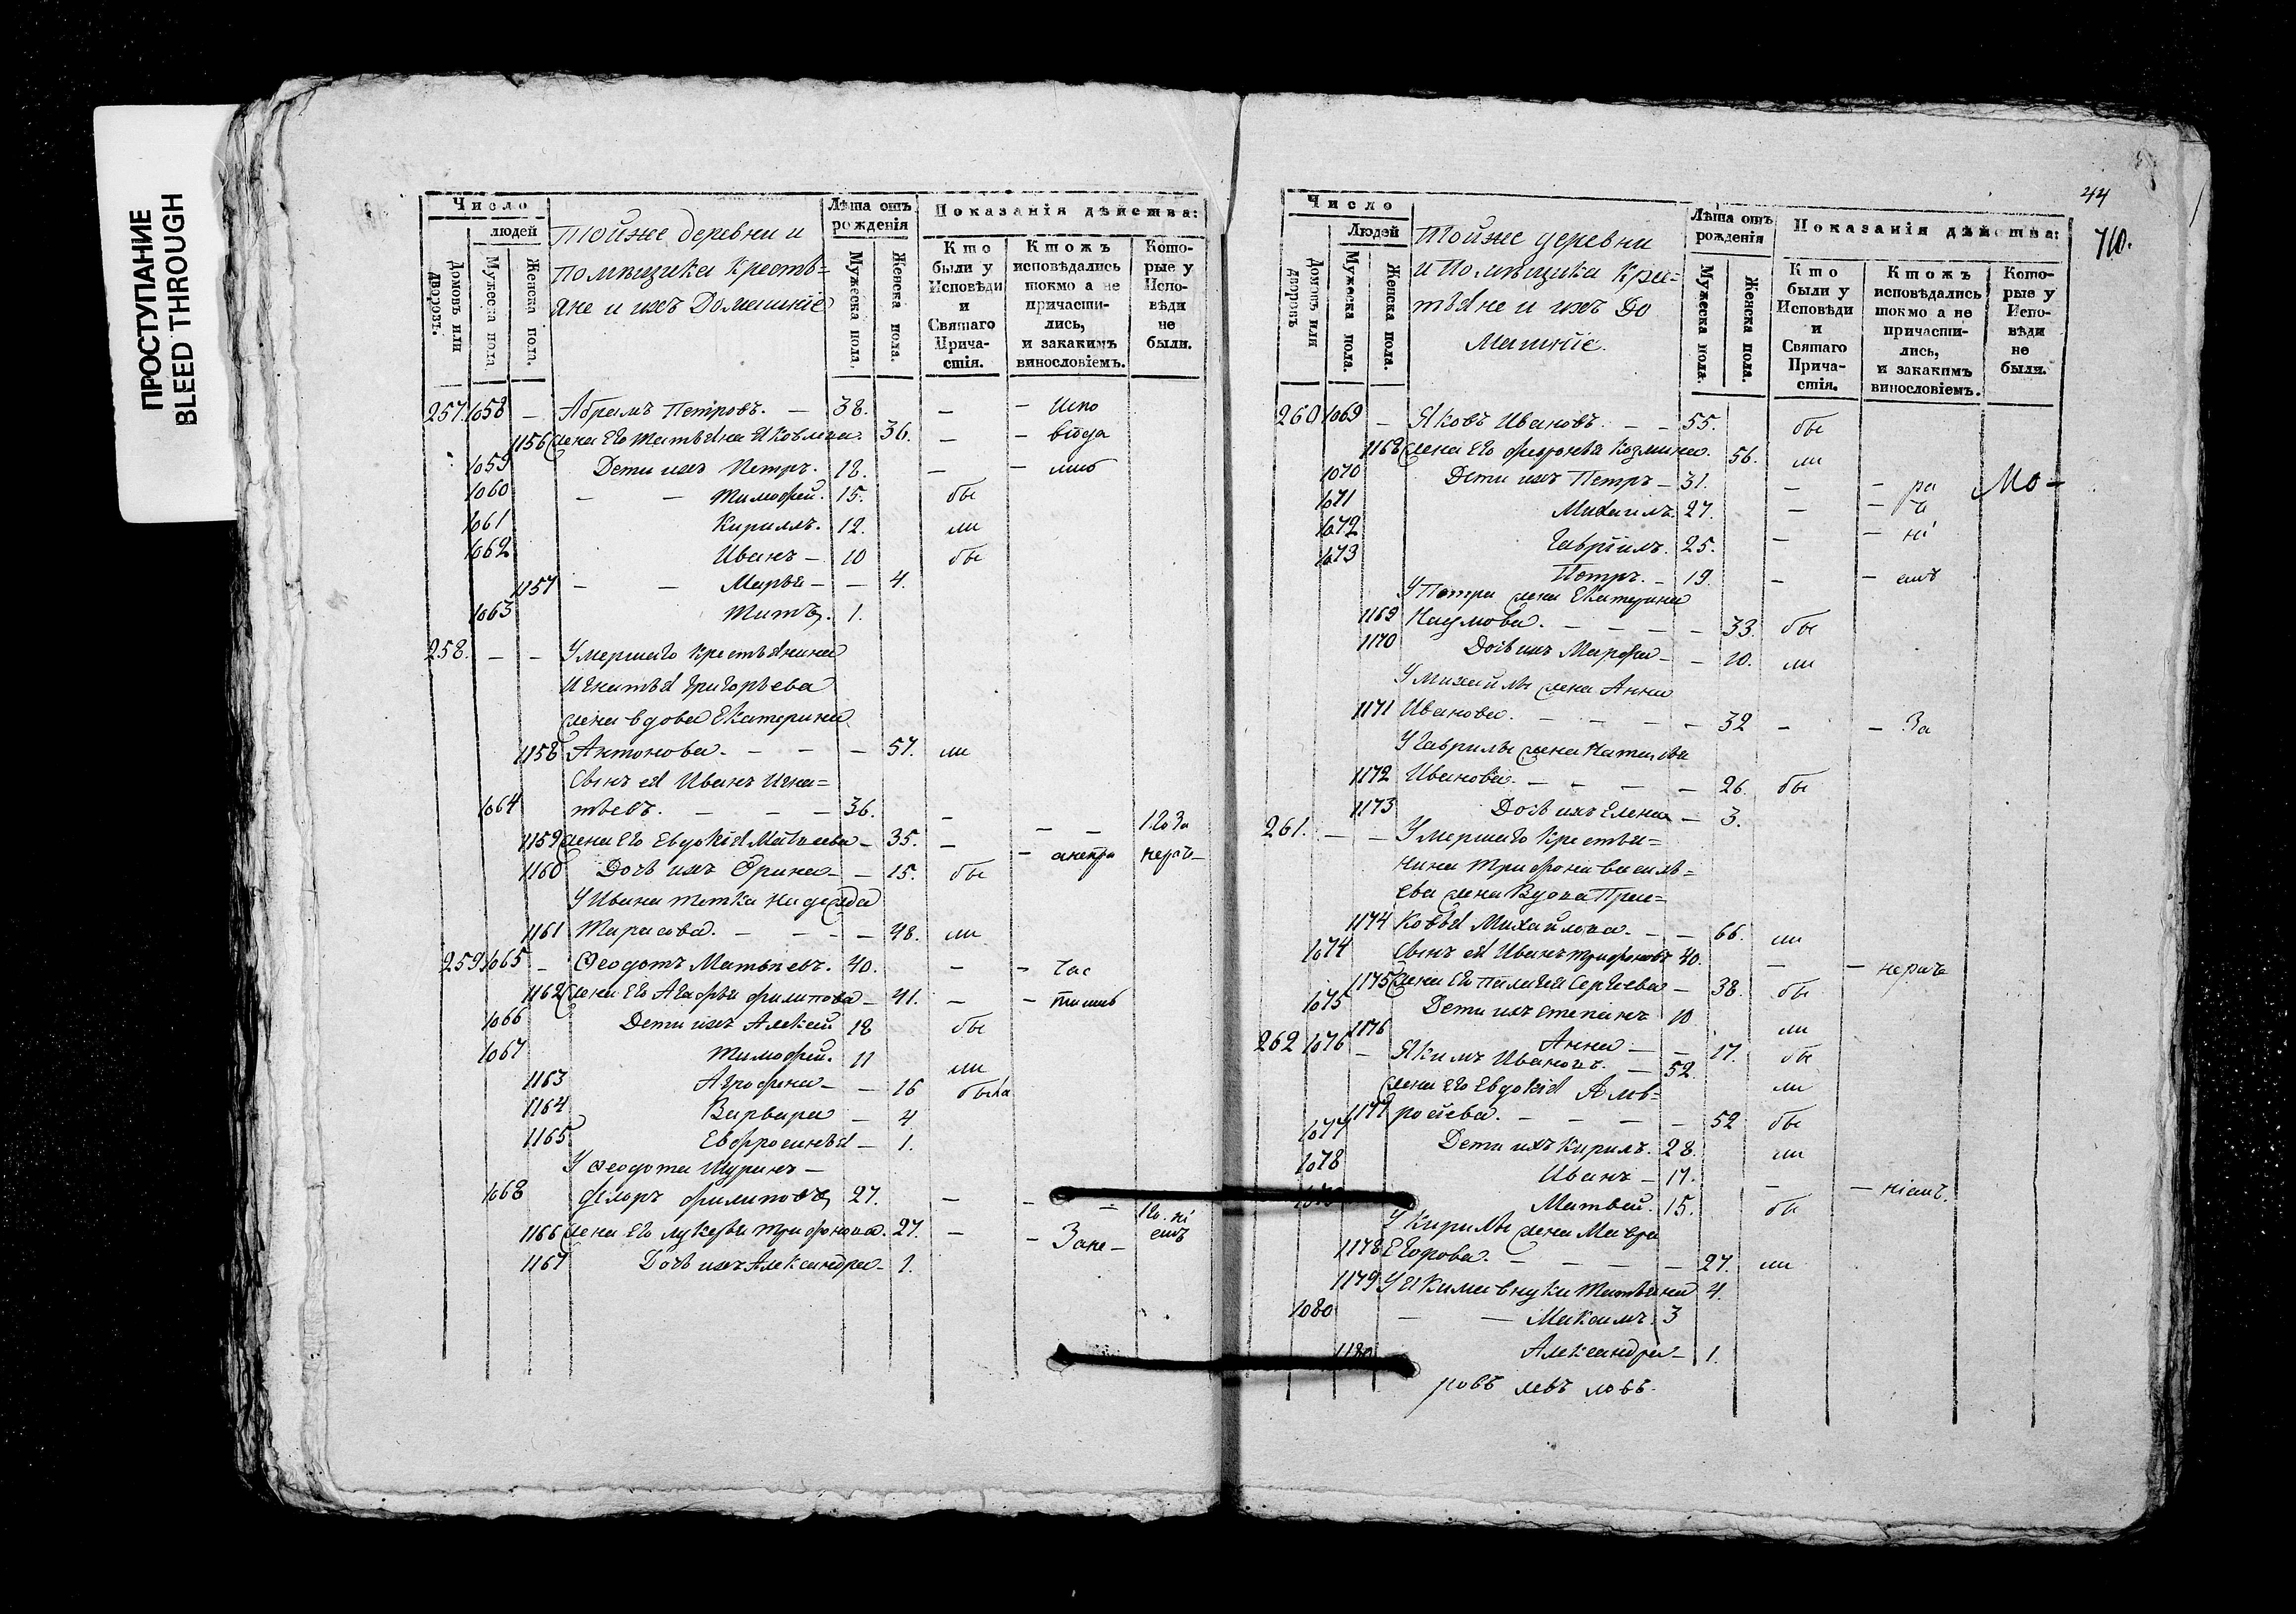 ПРОСТУПАНИЕ
BLEED THROUGH
Число
людей
Домовъ или дворовъ.
Мужеска пола
Женска пола.
Тойже деревни и
помѣщика кресть=
яне и ихъ Домашніе
Лѣта отъ рожденія
Мужеска пола.
Женска пола.
Показанія дѣйства:
Кто были у Исповѣди и Святаго Причастія.
Ктожъ исповѣдались токмо а не причастились, и закакимъ винословіемъ.
Которые у Исповѣди не были.
257. 1058 – Абрамъ Петровъ. – 38. – – Испо
1156 жена Его Татьяна Яковлева. 36. – – вѣда
1059 Дети ихъ Петръ. 18. – – лись
1060 – – Тимофей. 15. бы
1061 Кирилъ. 12. ли
1062 Иванъ – 10 бы
1157 – – Марья – – 4.
1063 Титъ. 1.
258. – – Умершаго крестьянина
Игнатья Григорьева
жена вдова Екатерина
1158 Антонова. – – – 57. ли
Сынъ ея Иванъ Игна=
1064 тьевъ. – – – 36. – – –
1159 жена Его Евдокія Матвеева – 35. –
1160 Дочь ихъ Ѳрина – – 15. бы
У Ивана тетка Надежда
1161 Тарасова. – – – 48. ли
259. 1065 – Ѳеодотъ Матвѣевъ. 40. – – Час
1162 жена Его Агафья Филипова – 41. – – тишь
1066 Дети ихъ Алексей 18 бы
1067 Тимофей. 11 ли
1163 Агрофена – – 16 была
1164 Варвара – 4
1165 Евфросинья – 1.
У Ѳеодота Шуринъ –
1068 Ѳедоръ Филиповъ 27. – – –
1166 жена Его Лукерья Трифонова. 27. – – Зане –
1167 Дочь ихъ Александра – 1.
44
710.
Число
Людей
Домовъ или дворовъ
Мужеска пола.
Женска пола.
Тойже деревни
и Помѣщика Крес=
тьяне и ихъ До
машніе.
Лѣта отъ рожденія
Мужеска пола.
Женска пола.
Показанія дѣйства:
Кто были у Исповѣди и Святаго Причастія.
Ктожъ исповѣдались токмо а не причастились, и закакимъ винословіемъ.
Которые у Исповѣди не были.
260 1069 – Яковъ Ивановъ. – – 55. бы
1168 жена Его Февронья Козмина. 56. ли
1070 Дети ихъ Петръ – 31. – – ра Мо –
1071 Михаилъ. 27. – –
1072 Гаврiилъ. 25. – – ні
1073 Петръ. – 19. – – емъ
У Петра жена Екатерина
1169 Наумова. – – – – 33. бы
1170 Дочь ихъ Марфа – – 10. ли
У Михайлы жена Анна
1171 Иванова. – – – – 32 – – За
У Гаврилы жена Наталья
1172 Иванова. – – – – 26. бы
1173 Дочь ихъ Елена – 3.
261. – – Умершаго Крестья=
нина Трифона Василь=
ева жена Вдова Прас=
1174 ковья Михайлова. – – 66. ли
1074 Сынъ ея Иванъ Трифоновъ 40. – – нераче
1175 жена Его Палагея Сергеева – 38. бы
1075 Дети ихъ Степанъ 10 ли
1176 Анна – – 17. бы
262 1076 – Якимъ Ивановъ. – 52. ли
жена его Евдокія Амв=
1177 росіева. – – – – 52 бы
1077 Дети ихъ Кирилъ. 28. ли
1078 Иванъ – 17. – – ніемъ.
Матвей. 15. бы
У Кирилы жена Мавра
1178 Егорова. – – – – 27. ли
1179 У Якима внуки Татьяна 4.
1080 – – Максимъ. 3
1180 Александра – 1.
ровъ левъ ловъ.